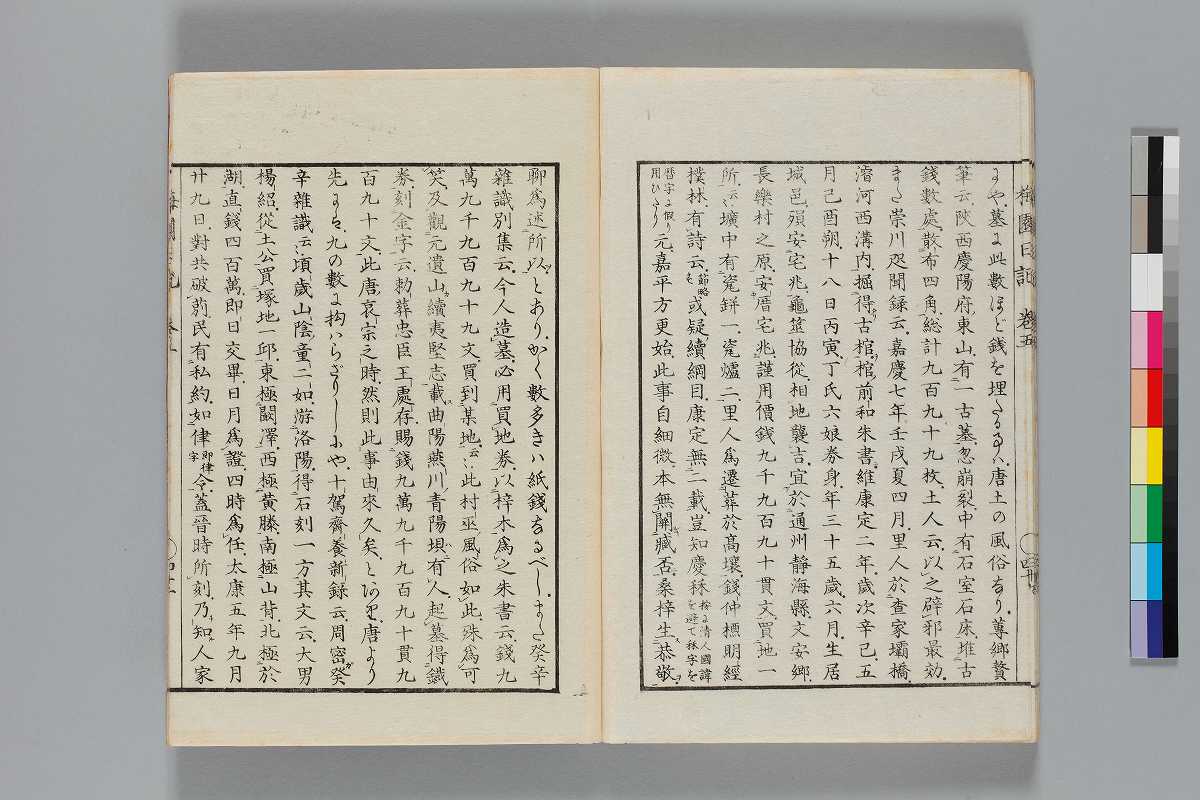 梅園日記 卷五
にや、墓に此數ほど錢を埋たるは、唐土の風俗なり、蓴郷贅
筆云、陜西慶陽府東山、有一古墓、忽崩裂、中有石室石床、堆古
錢數處、散布四角、総計九百九十九枚、土人云、以之辟邪最効、
また崇川咫聞録云、嘉慶七年壬戌夏四月、里人於査家壩橋
濬河西溝内、掘得古棺、棺前和朱書、維康定二年、歲次辛巳、五
月己酉朔、十八日丙寅、丁氏六娘券、身年三十五歲、六月生居
城邑、殞安宅兆、龜筮協從、相地襲吉、宜於通州靜海縣、文安郷、
長樂村之原、安厝宅兆、謹用價錢九千九百九十貫文、買地一
所、云〻壙中有瓷缾一、瓷爐二、里人爲遷葬於髙壤、錢仲櫄明經
樸林、有詩云、節略も或疑續綱目、康定無二載、豈知慶秝按に清人國諱を避て秝字を
暦字に假り用ひたり元、嘉平方更始、此事自細微、本無關臧否、桑梓生恭敬、
聊爲述所以、とあり、かく數多きハ紙錢なるべし、また癸辛
雜識別集云、今人造墓、必用買地券、以梓木爲之、朱書云、錢九
萬九千九百九十九文、買到某地、云〻此村巫風俗如此、殊爲可
笑、及觀元遺山續夷堅志、載曲陽燕川青陽壩有人、起墓得鐵
券、刻金字云、勅葬忠臣王處存、賜錢九萬九千九百九十貫九
百九十文、此唐哀宗之時、然則此事由來久矣、といへり、唐より
先にハ、九の數に拘ハらざりしにや、十駕齋養新録云、周密癸
辛雜識云、頃歲山陰童二如、游洛陽、得石刻一方、其文云、大男
楊紹、從土公買塚地一邱、東極闞澤、西極黃滕、南極山背、北極於
湖、直錢四百萬、即日交畢、日月爲證、四時爲任、太康五年九月
廿九日、對共破莂、民有私約、如律即律字令、葢晉時所刻、乃知人家